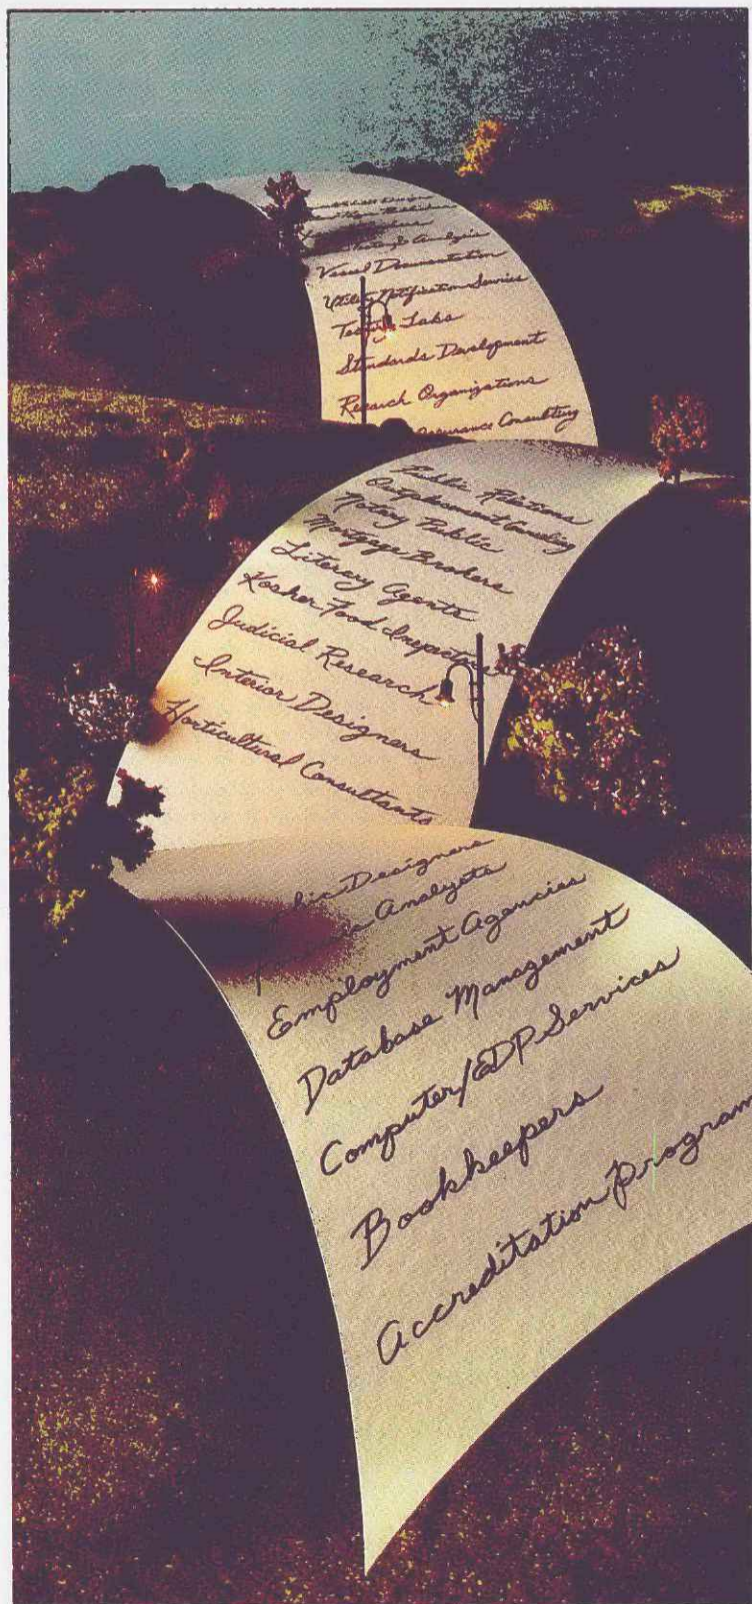 Testing & Analysis
Vessel Documentation
Utility Notification Services
Testing Labs
Standards Development
Research Organizations
Assurance Consulting
Public Relations
Outplacement Consulting
Notary Public
Mortgage Brokers
Literary Agents
Kosher Food Inspection
Judicial Research
Interior Designers
Horticultural Consultants
phic Designers
Analysts
Employment Agencies
Database Management
Computer/EDP Services
Bookkeepers
Accreditation Program